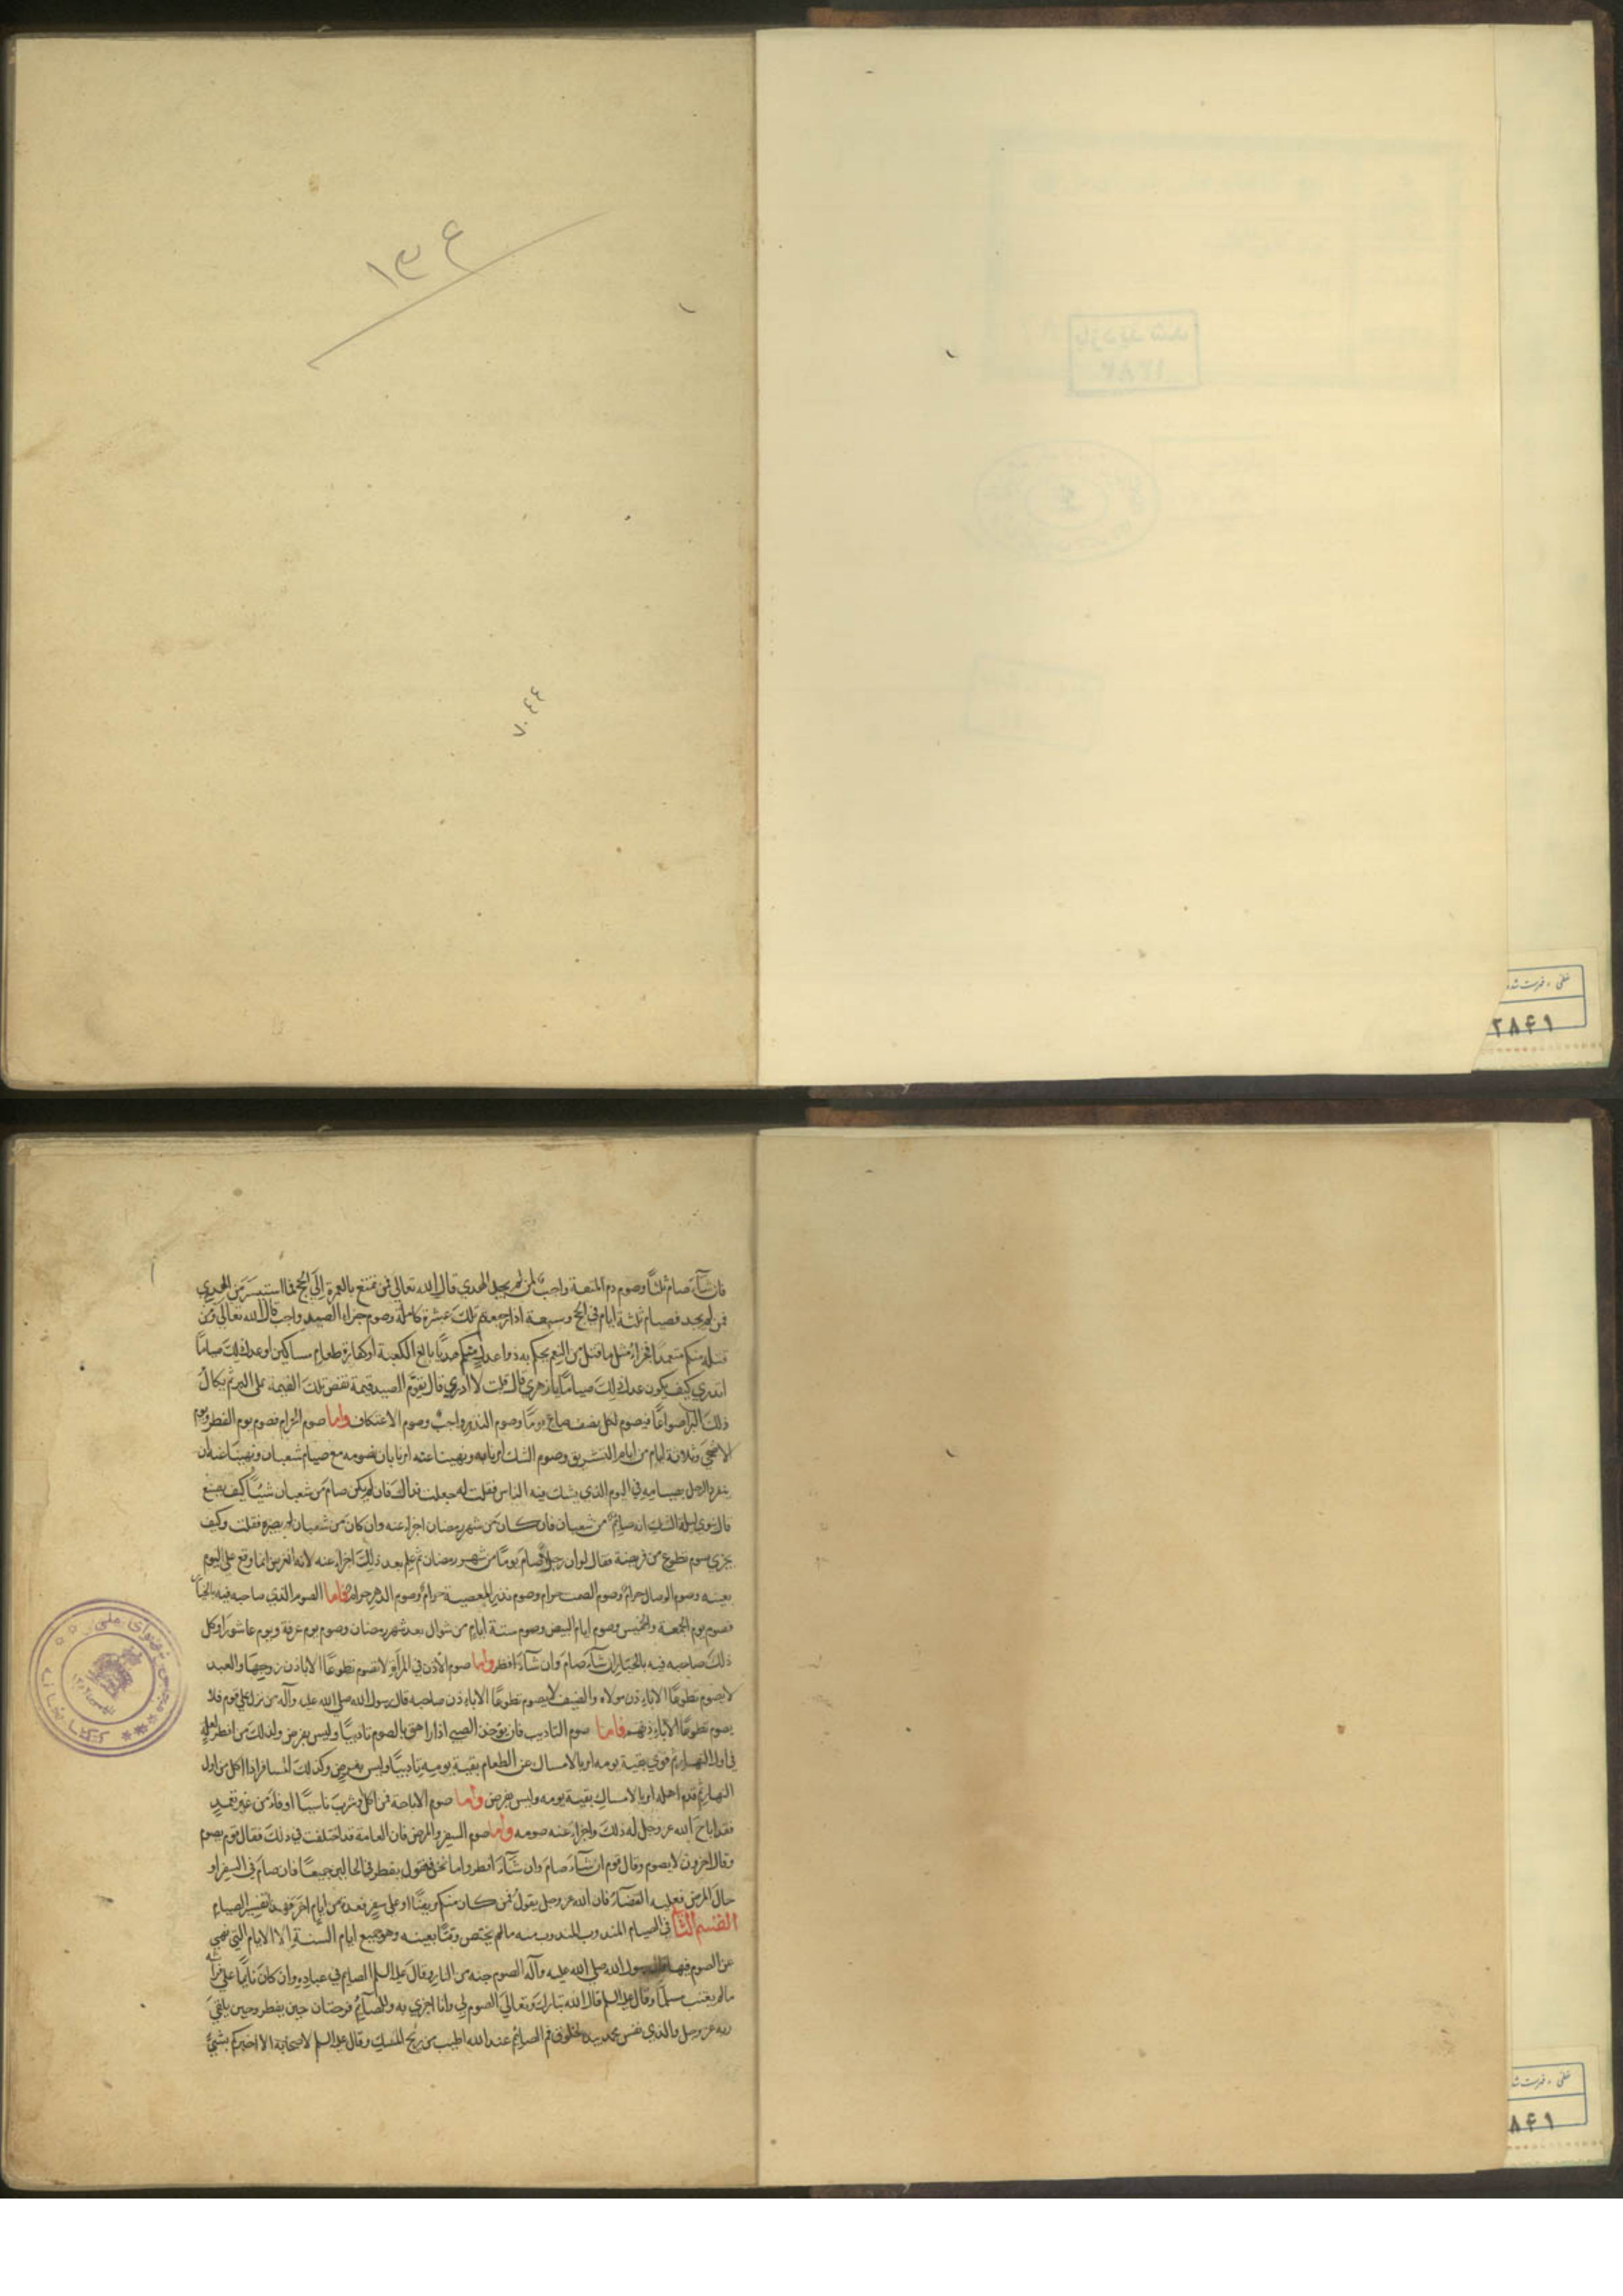 ١٣٤
٧٠٤٤
خطی - فهرست شده
٢٨۴١
فان شآء صام ثلثًا وصوم دم المتعة واجبٌ لمن لم يجد الهدي قال الله تعالى فمن تمتع بالعمرة إلى الحج فما استيسر من الهدي
فمن لم يجد فصيام ثلثة ايام في الحج وسبعة اذا رجعتم تلك عشرة كاملة وصوم جزاء الصيد واجب قال الله تعالى ومن
قتله منكم متعمدًا فجزاء مثل ما قتل من النعم يحكم به ذوا عدل منكم هديًا بالغ الكعبة او كفارة طعام مساكين او عدل ذلك صيامًا
اتدري كيف يكون عدل ذلك صيامًا يا زهري قال قلت لا ادري قال يقوّم الصيد قيمة تفض تلك القيمة على البر ثم يكال
ذلك البر اصواعًا فيصوم لكل نصف صاع يومًا وصوم النذر واجبٌ وصوم الاعتكاف واما صوم الحرام فصوم يوم الفطر ويوم
الاضحى وثلاثة ايام من ايام التشريق وصوم الشك امرنا به ونهينا عنه امرنا بان نصومه مع صيام شعبان ونهينا عنه ان
ينفرد الرجل بصيامه في اليوم الذي يشك فيه الناس فقلت له جعلت فداك فان لم يكن صام من شعبان شيئًا كيف يصنع
قال ينوي ليلة الشك انه صائمٌ من شعبان فان كان من شهر رمضان اجزاء عنه وان كان من شعبان لم يضره فقلت وكيف
يجزي صوم تطوع من فريضة فقال لو ان رجلًا صام يومًا من شهر رمضان ثم علم بعد ذلك اجزاء عنه لانه الفرض انما وقع على اليوم
بعينه وصوم الوصال حرامٌ وصوم الصمت حرام وصوم نذر المعصية حرامٌ وصوم الدهر حرام فاما الصوم الذي صاحبه فيه بالخيار
فصوم يوم الجمعة والخميس وصوم ايام البيض وصوم ستة ايام من شوال بعد شهر رمضان وصوم يوم عرفة ويوم عاشورآء وكل
ذلك صاحبه فيه بالخيار ان شآء صام وان شآء افطر واما صوم الاذن فالمرأة لا تصوم تطوعًا الا باذن زوجها والعبد
لا يصوم تطوعًا الا باذن مولاه والضيف لا يصوم تطوعًا الا باذن صاحبه قال رسول الله صلى الله عليه وآله من نزل على قوم فلا
يصوم تطوعًا الا باذنهم فاما صوم التاديب فان يؤخذ الصبي اذا راهق بالصوم تاديبًا وليس بفرض وكذلك من افطر لعلة
في اول النهار ثم قوي بقية يومه امر بالامساك عن الطعام بقية يومه تاديبًا وليس بفرض وكذلك المسافر اذا اكل من اول
النهار ثم قدم اهله امر بالامساك بقية يومه وليس بفرض واما صوم الاباحة فمن اكل او شرب ناسيًا او قاء من غير تعمدٍ
فقد اباح الله عز وجل له ذلك واجزاء عنه صومه واما صوم السفر والمرض فان العامة قد اختلفت في ذلك فقال قوم يصوم
وقال اخرون لا يصوم وقال قوم ان شآء صام وان شآء افطر واما نحن فنقول يفطر في الحالين جميعًا فان صام في السفر او
حال المرض فعليه القضآء فان الله عز وجل يقول فمن كان منكم مريضًا او على سفر فعدة من ايام اخر فهذا تفسير الصيام
القسم الثاني في الصيام المندوب المندوب منه ما لم يختص وقتًا بعينه وهو جميع ايام السنة الا الايام التي نهي
عن الصوم فيها قال رسول الله صلى الله عليه وآله الصوم جنه من النار وقال عليه السلم الصايم في عبادةٍ وان كان نايمًا على فراشه
ما لم يغتب مسلمًا وقال عليه السلم قال الله تبارك وتعالى الصوم لي وانا اجزي به وللصآئم فرحتان حين يفطر وحين يلقى
ربه عز وجل والذي نفس محمد بيده لخلوق فم الصائم عند الله اطيب من ريح المسك وقال عليه السلم لاصحابه الا اخبركم بشئ